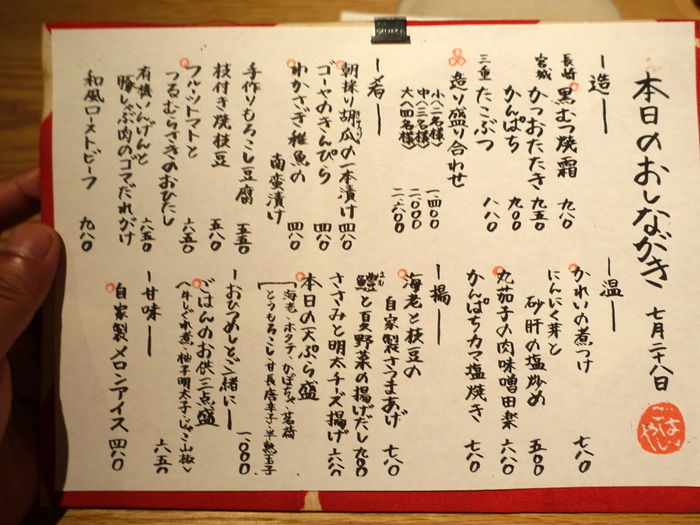 本日のおしながき 七月二十八日
ごはんや
ー造ー
長崎 黒むつ焼霜 九八〇
宮城 かつおたたき 九五〇
かんぱち 九〇〇
三重 たこぶつ 八八〇
造り盛り合わせ
小(二名様) 一四〇〇
中(三名様) 二〇〇〇
大(四名様) 二六〇〇
ー肴ー
朝採り胡瓜の一本漬け 四八〇
ゴーヤのきんぴら 四八〇
わかさぎ稚魚の
南蛮漬け 四八〇
手作りもろこし豆腐 五五〇
枝付き焼枝豆 五八〇
フルーツトマトと
つるむらさきのおひたし 六五〇
有機いんげんと
豚しゃぶ肉のゴマだれがけ 六五〇
和風ローストビーフ 九八〇
ー温ー
かれいの煮つけ 七八〇
にんにく芽と
砂肝の塩炒め 五〇〇
丸茄子の肉味噌田楽 六八〇
かんぱちカマ塩焼き 七八〇
ー揚ー
海老と枝豆の
自家製さつまあげ 七八〇
鱧と夏野菜の揚げだし 九〇〇
ささみと明太チーズ揚げ 六八〇
本日の天ぷら盛
海老・ホタテ・かぼちゃ・茗荷
とうもろこし・甘長唐辛子・半熟玉子
一、〇〇〇
ーおひつめしとご一緒にー
ごはんのお供三点盛
〈牛しぐれ煮・柚子明太子・じゃこ山椒〉
六五〇
ー甘味ー
自家製メロンアイス 四八〇